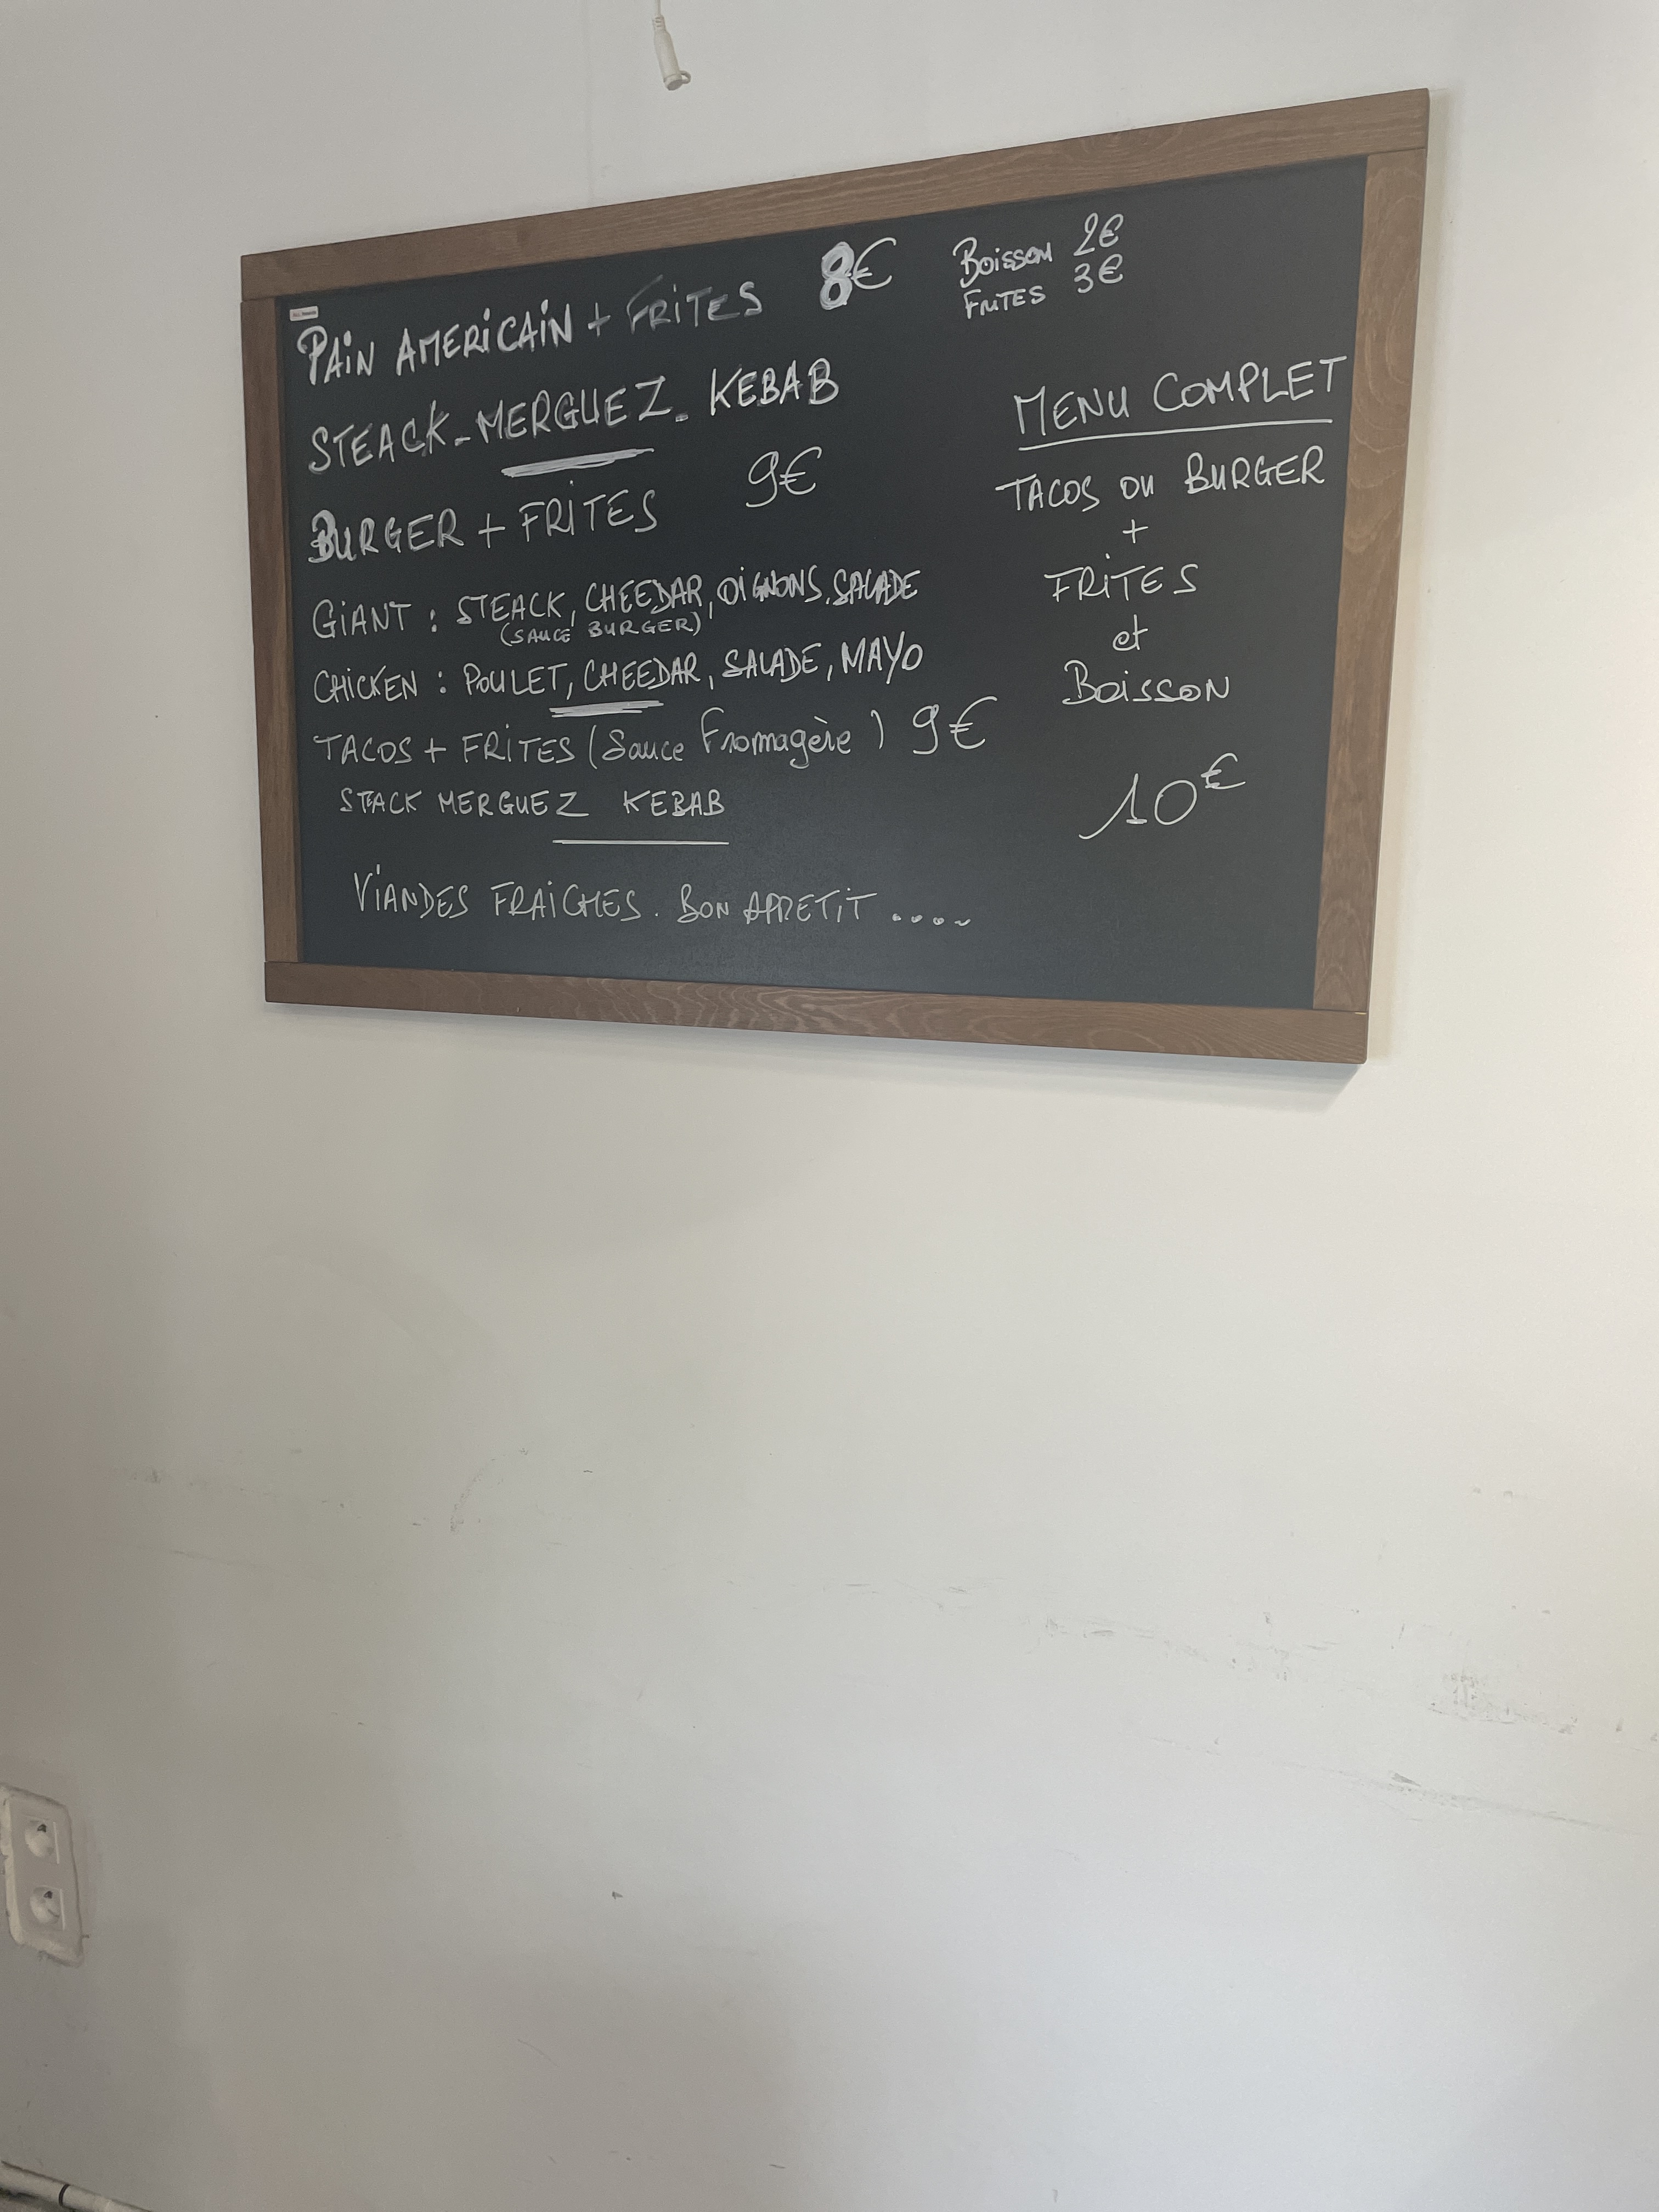 PAIN AMERICAIN + FRITES 8€
STEACK - MERGUEZ - KEBAB
BURGER + FRITES 9€
GIANT : STEACK, CHEEDAR, OIGNONS, SALADE
(SAUCE BURGER)
CHICKEN : POULET, CHEEDAR, SALADE, MAYO
TACOS + FRITES (Sauce Fromagère) 9€
STACK MERGUEZ KEBAB
VIANDES FRAICHES. BON APPETIT ....
Boisson 2€
FRITES 3€
MENU COMPLET
TACOS OU BURGER
+
FRITES
et
Boisson
10€